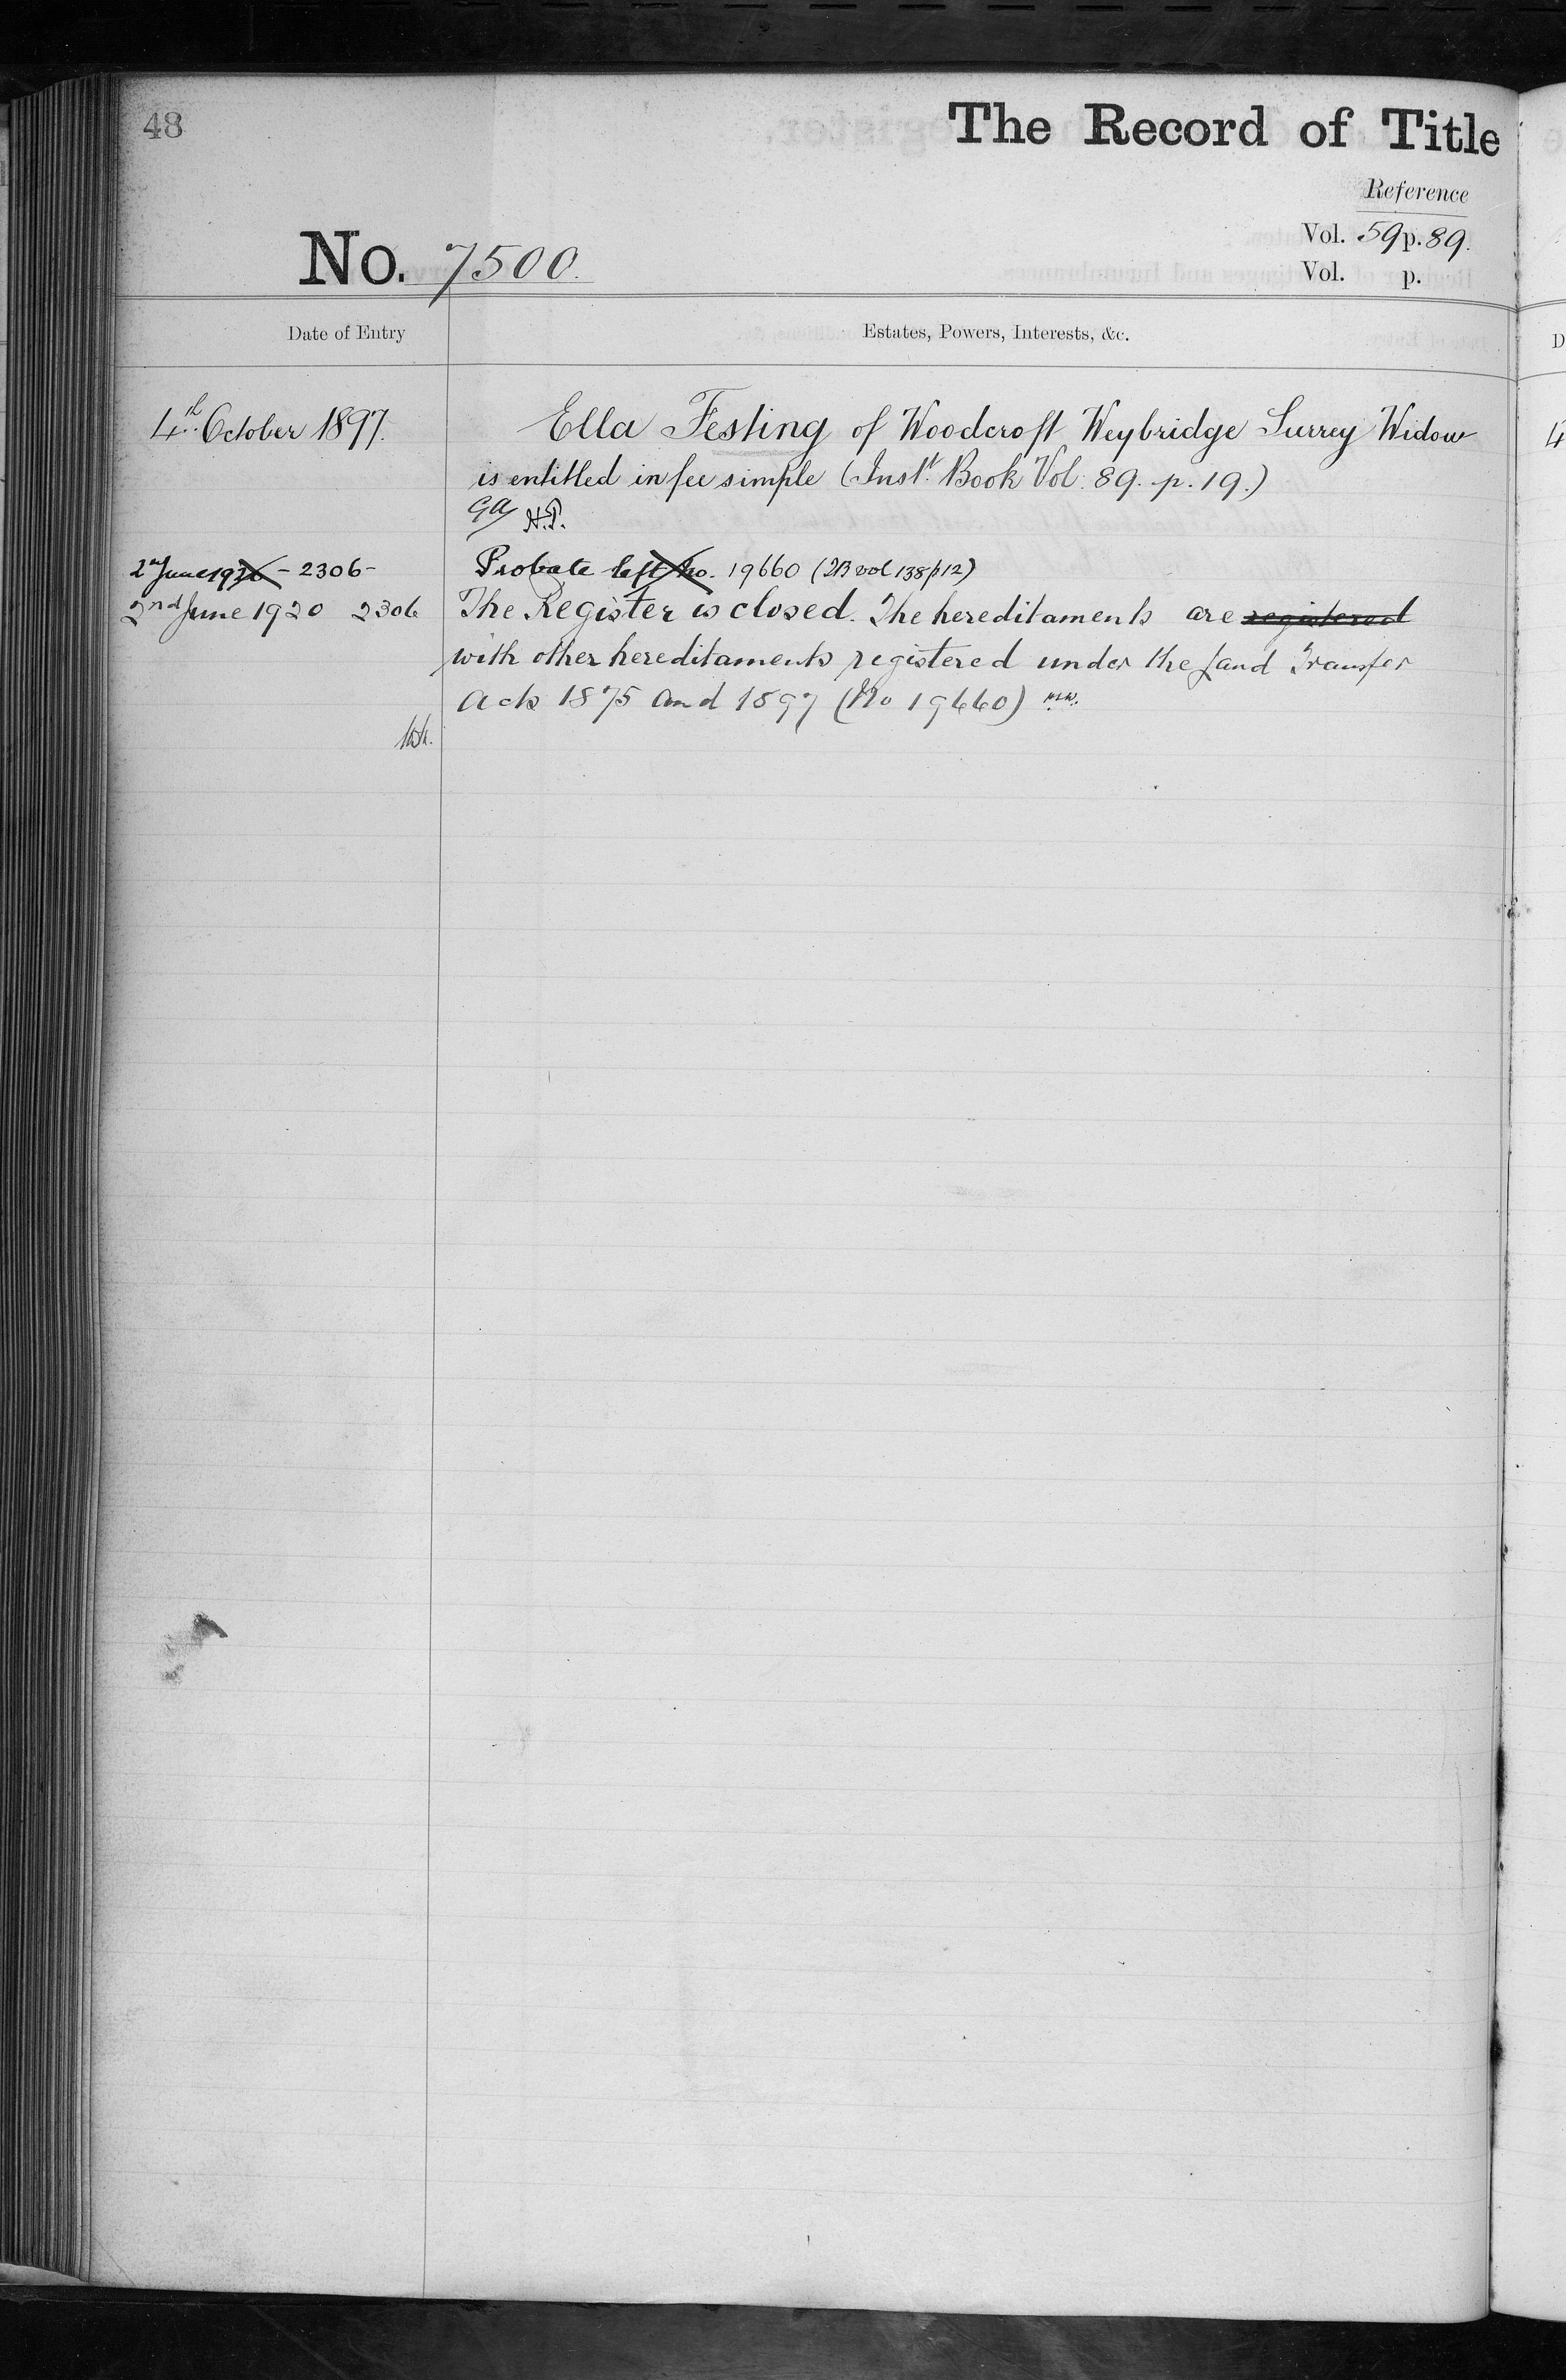 48
The Record of Title
Reference
Vol. 59 p. 89.
No. 7500.
Vol. p.
Date of Entry
Estates, Powers, Interests, &c.
4th October 1897.
Ella Festing of Woodcroft Weybridge Surrey Widow
is entitled in fee simple (Inst. Book Vol. 89. p. 19.)
GA H.P.
2nd June 1920 - 2306 -
Probate left No. 19660 (IB vol 138 p12)
2nd June 1920 2306
The Register is closed. The hereditaments are registered
with other hereditaments registered under the Land Transfer
Acts 1875 and 1897 (No 19660)